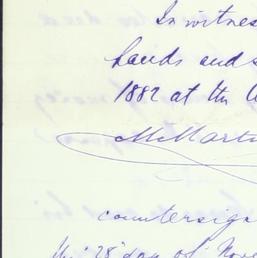 In witnes
hands and s
1882 at the
M Mart
countersign
28 day of Nove